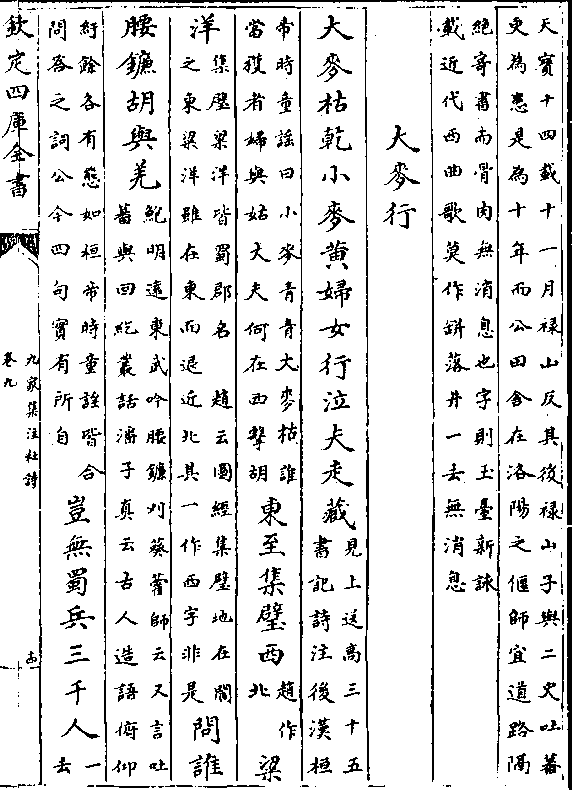 天寶十四載十一月禄山反其後禄山子與二史吐蕃
更為患是為十年而公田舍在洛陽之偃師宜道路隔
絶寄書而骨肉無消息也字則玉臺新詠
載近代西曲歌莫作缾落井一去無消息
大麥行
大麥枯乾小麥黄婦女行泣夫走藏
見上送高三十五
書記詩注後漢桓
帝時童謡曰小麥青青大麥枯誰
當穫者婦與姑大夫何在西擊胡
東至集壁西
趙作
北
梁
洋
集壁梁洋皆蜀郡名 趙云圖經集壁地在閬
之東梁洋雖在東而退近北其一作西字非是
問誰
腰鐮胡與羌
鮑明遠東武吟腰鐮刈葵藿師云又言吐
蕃與回紇叢話潘子真云古人造語俯仰
紆餘各有態如桓帝時童謡皆合
問答之詞公今四句實有所自
豈無蜀兵三千人
一
去
欽定四庫全書
九家集注杜詩
卷九